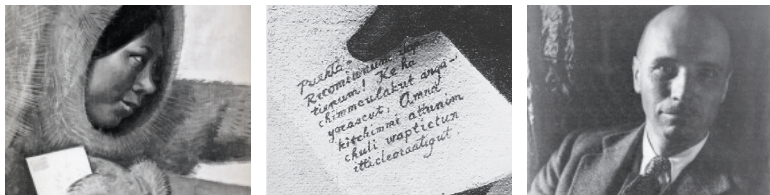 Puerto-
Ricomiunun ilap-
ticnum! Ke ha
chimmeulakut anga-
yoraacut. Amna
kitchimmi attunim
chuli waptictun
itticleoraatigut